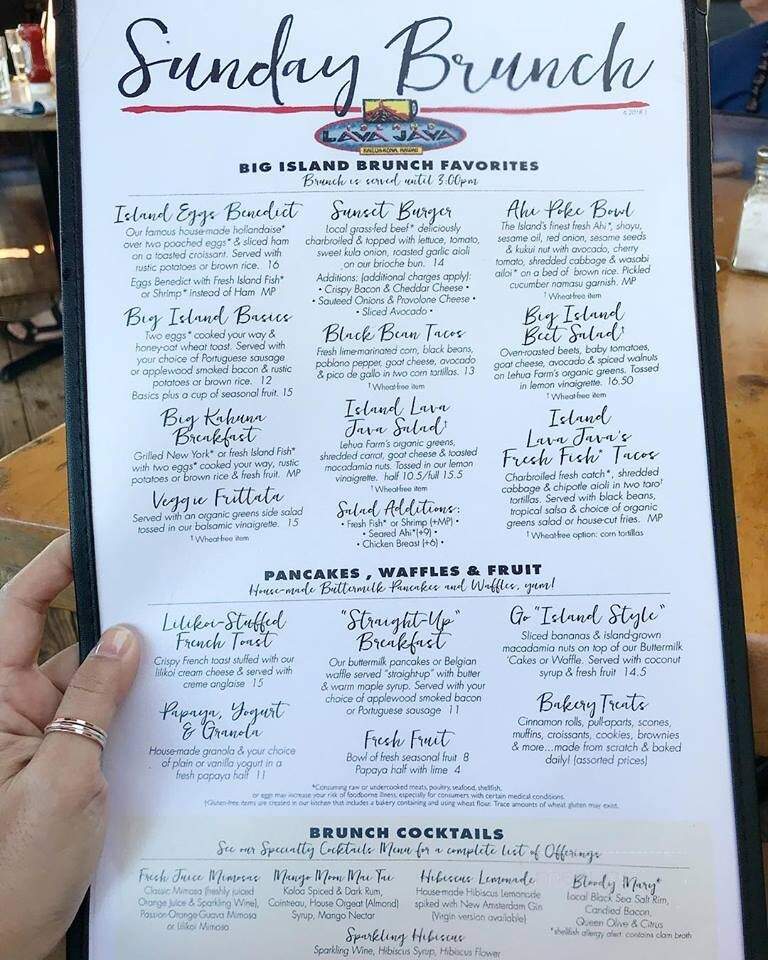 Sunday Brunch
© 2018
ISLAND
LAVA JAVA
KAILUA-KONA, HAWAII
BIG ISLAND BRUNCH FAVORITES
Brunch is served until 3:00pm
Island Eggs Benedict
Our famous house-made hollandaise*
over two poached eggs* & sliced ham
on a toasted croissant. Served with
rustic potatoes or brown rice. 16
Eggs Benedict with Fresh Island Fish*
or Shrimp* instead of Ham MP
Big Island Basics
Two eggs* cooked your way &
honey-oat wheat toast. Served with
your choice of Portuguese sausage
or applewood smoked bacon & rustic
potatoes or brown rice. 12
Basics plus a cup of seasonal fruit. 15
Big Kahuna
Breakfast
Grilled New York* or fresh Island Fish*
with two eggs* cooked your way, rustic
potatoes or brown rice & fresh fruit. MP
Veggie Frittata
Served with an organic greens side salad
tossed in our balsamic vinaigrette. 15
† Wheat-free item
Sunset Burger
Local grass-fed beef* deliciously
charbroiled & topped with lettuce, tomato,
sweet kula onion, roasted garlic aioli
on our brioche bun. 14
Additions: (additional charges apply):
• Crispy Bacon & Cheddar Cheese •
• Sauteed Onions & Provolone Cheese •
• Sliced Avocado •
Black Bean Tacos
Fresh lime-marinated corn, black beans,
poblano pepper, goat cheese, avocado
& pico de gallo in two corn tortillas. 13
† Wheat-free item
Island Lava
Java Salad†
Lehua Farm's organic greens,
shredded carrot, goat cheese & toasted
macadamia nuts. Tossed in our lemon
vinaigrette. half 10.5/full 15.5
† Wheat-free item
Salad Additions:
• Fresh Fish* or Shrimp (+MP) •
• Seared Ahi*(+9) •
• Chicken Breast (+6) •
Ahi Poke Bowl
The Island's finest fresh Ahi*, shoyu,
sesame oil, red onion, sesame seeds
& kukui nut with avocado, cherry
tomato, shredded cabbage & wasabi
ailoi* on a bed of brown rice. Pickled
cucumber namasu garnish. MP
† Wheat-free item
Big Island
Beet Salad†
Oven-roasted beets, baby tomatoes,
goat cheese, avocado & spiced walnuts
on Lehua Farm's organic greens. Tossed
in lemon vinaigrette. 16.50
† Wheat-free item
Island
Lava Java's
Fresh Fish* Tacos
Charbroiled fresh catch*, shredded
cabbage & chipotle aioli in two taro†
tortillas. Served with black beans,
tropical salsa & choice of organic
greens salad or house-cut fries. MP
† Wheat-free option: corn tortillas
PANCAKES , WAFFLES & FRUIT
House-made Buttermilk Pancakes and Waffles, yum!
Lilikoi-Stuffed
French Toast
Crispy French toast stuffed with our
lilikoi cream cheese & served with
creme anglaise 15
Papaya, Yogurt
& Granola
House-made granola & your choice
of plain or vanilla yogurt in a
fresh papaya half 11
"Straight-Up"
Breakfast
Our buttermilk pancakes or Belgian
waffle served "straight-up" with butter
& warm maple syrup. Served with your
choice of applewood smoked bacon
or Portuguese sausage 11
Fresh Fruit
Bowl of fresh seasonal fruit 8
Papaya half with lime 4
Go "Island Style"
Sliced bananas & island-grown
macadamia nuts on top of our Buttermilk
'Cakes or Waffle. Served with coconut
syrup & fresh fruit 14.5
Bakery Treats
Cinnamon rolls, pull-aparts, scones,
muffins, croissants, cookies, brownies
& more...made from scratch & baked
daily! (assorted prices)
*Consuming raw or undercooked meats, poultry, seafood, shellfish,
or eggs may increase your risk of foodborne illness, especially for consumers with certain medical conditions.
†Gluten-free items are created in our kitchen that includes a bakery containing and using wheat flour. Trace amounts of wheat gluten may exist.
BRUNCH COCKTAILS
See our Specialty Cocktails Menu for a complete list of Offerings
Fresh Juice Mimosas
Classic Mimosa (freshly juiced
Orange Juice & Sparkling Wine),
Passion-Orange-Guava Mimosa
or Lilikoi Mimosa
Mango Mom Mai Tai
Koloa Spiced & Dark Rum,
Cointreau, House Orgeat (Almond)
Syrup, Mango Nectar
Hibiscus Lemonade
House-made Hibiscus Lemonade
spiked with New Amsterdam Gin
(Virgin version available)
Bloody Mary*
Local Black Sea Salt Rim,
Candied Bacon,
Queen Olive & Citrus
*shellfish allergy alert: contains clam broth
Sparkling Hibiscus
Sparkling Wine, Hibiscus Syrup, Hibiscus Flower